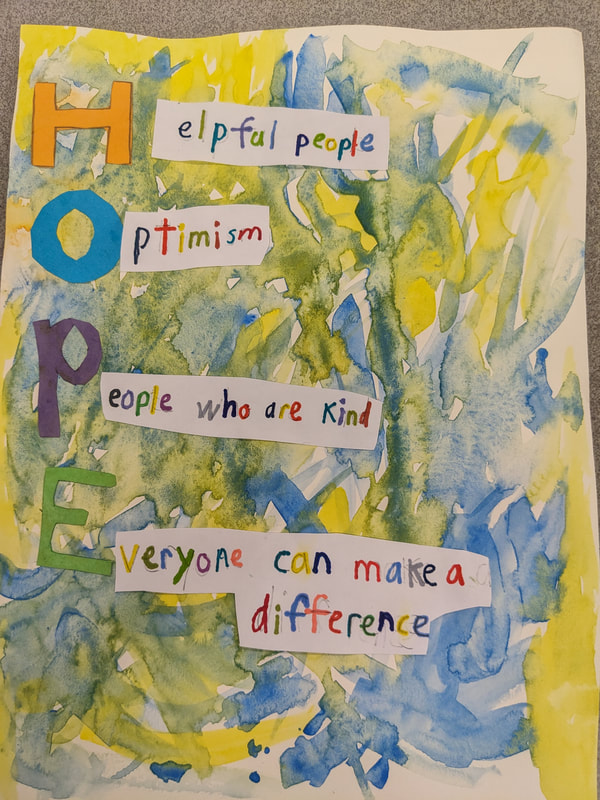 Helpful people
Optimism
People who are Kind
Everyone can make a
difference